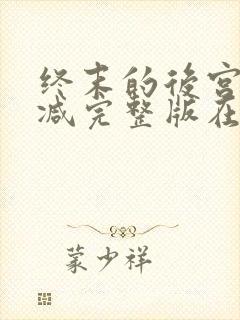 终末的後宫
减完整版在
蒙少祥